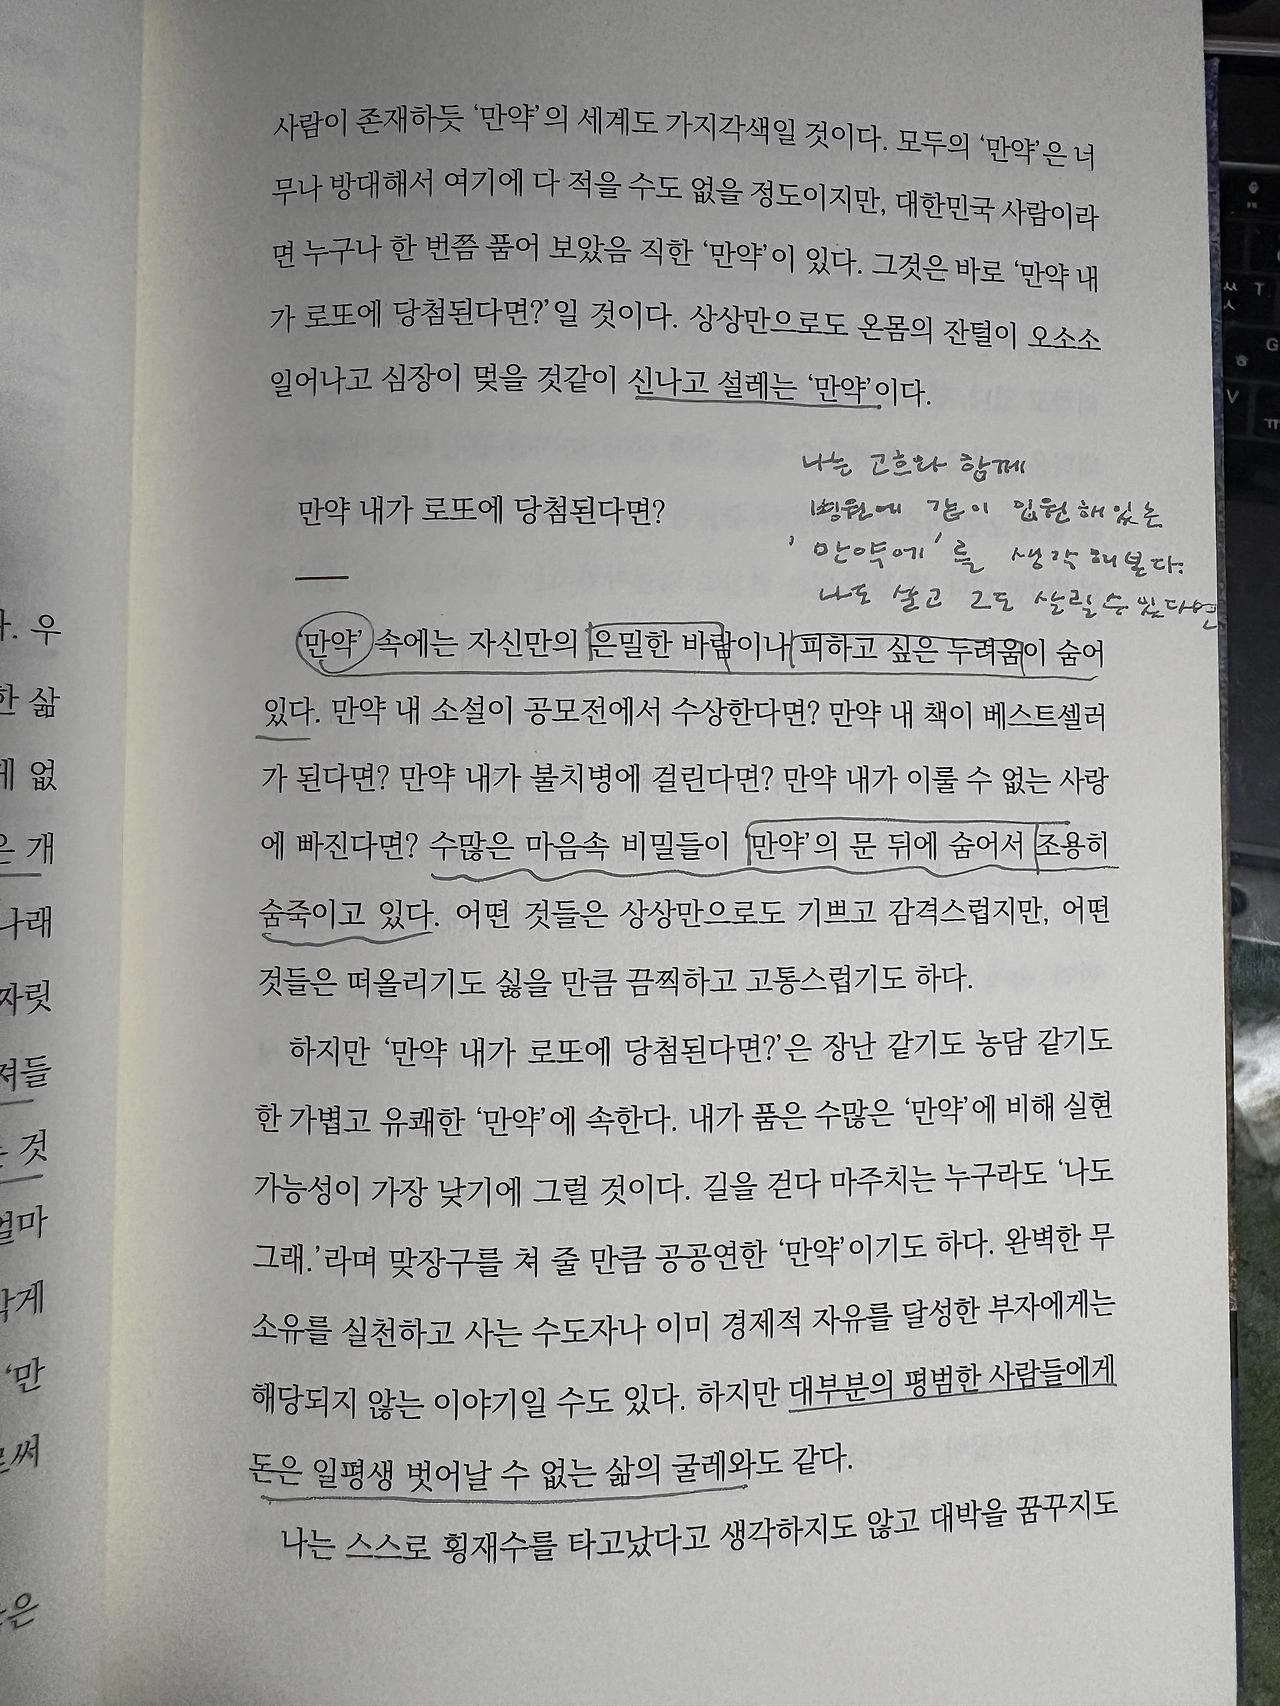 사람이 존재하듯 ‘만약’의 세계도 가지각색일 것이다. 모두의 ‘만약’은 너
무나 방대해서 여기에 다 적을 수도 없을 정도이지만, 대한민국 사람이라
면 누구나 한 번쯤 품어 보았음 직한 ‘만약’이 있다. 그것은 바로 ‘만약 내
가 로또에 당첨된다면?’일 것이다. 상상만으로도 온몸의 잔털이 오소소
일어나고 심장이 멎을 것같이 신나고 설레는 ‘만약’이다.
나는 고흐와 함께
병원에 같이 입원해있는
‘만약에’를 생각해본다.
나도 살고 그도 살릴 수 있다면
만약 내가 로또에 당첨된다면?
‘만약’ 속에는 자신만의 은밀한 바람이나 피하고 싶은 두려움이 숨어
있다. 만약 내 소설이 공모전에서 수상한다면? 만약 내 책이 베스트셀러
가 된다면? 만약 내가 불치병에 걸린다면? 만약 내가 이룰 수 없는 사랑
에 빠진다면? 수많은 마음속 비밀들이 ‘만약’의 문 뒤에 숨어서 조용히
숨죽이고 있다. 어떤 것들은 상상만으로도 기쁘고 감격스럽지만, 어떤
것들은 떠올리기도 싫을 만큼 끔찍하고 고통스럽기도 하다.
하지만 ‘만약 내가 로또에 당첨된다면?’은 장난 같기도 농담 같기도
한 가볍고 유쾌한 ‘만약’에 속한다. 내가 품은 수많은 ‘만약’에 비해 실현
가능성이 가장 낮기에 그럴 것이다. 길을 걷다 마주치는 누구라도 ‘나도
그래.’라며 맞장구를 쳐 줄 만큼 공공연한 ‘만약’이기도 하다. 완벽한 무
소유를 실천하고 사는 수도자나 이미 경제적 자유를 달성한 부자에게는
해당되지 않는 이야기일 수도 있다. 하지만 대부분의 평범한 사람들에게
돈은 일평생 벗어날 수 없는 삶의 굴레와도 같다.
나는 스스로 횡재수를 타고났다고 생각하지도 않고 대박을 꿈꾸지도